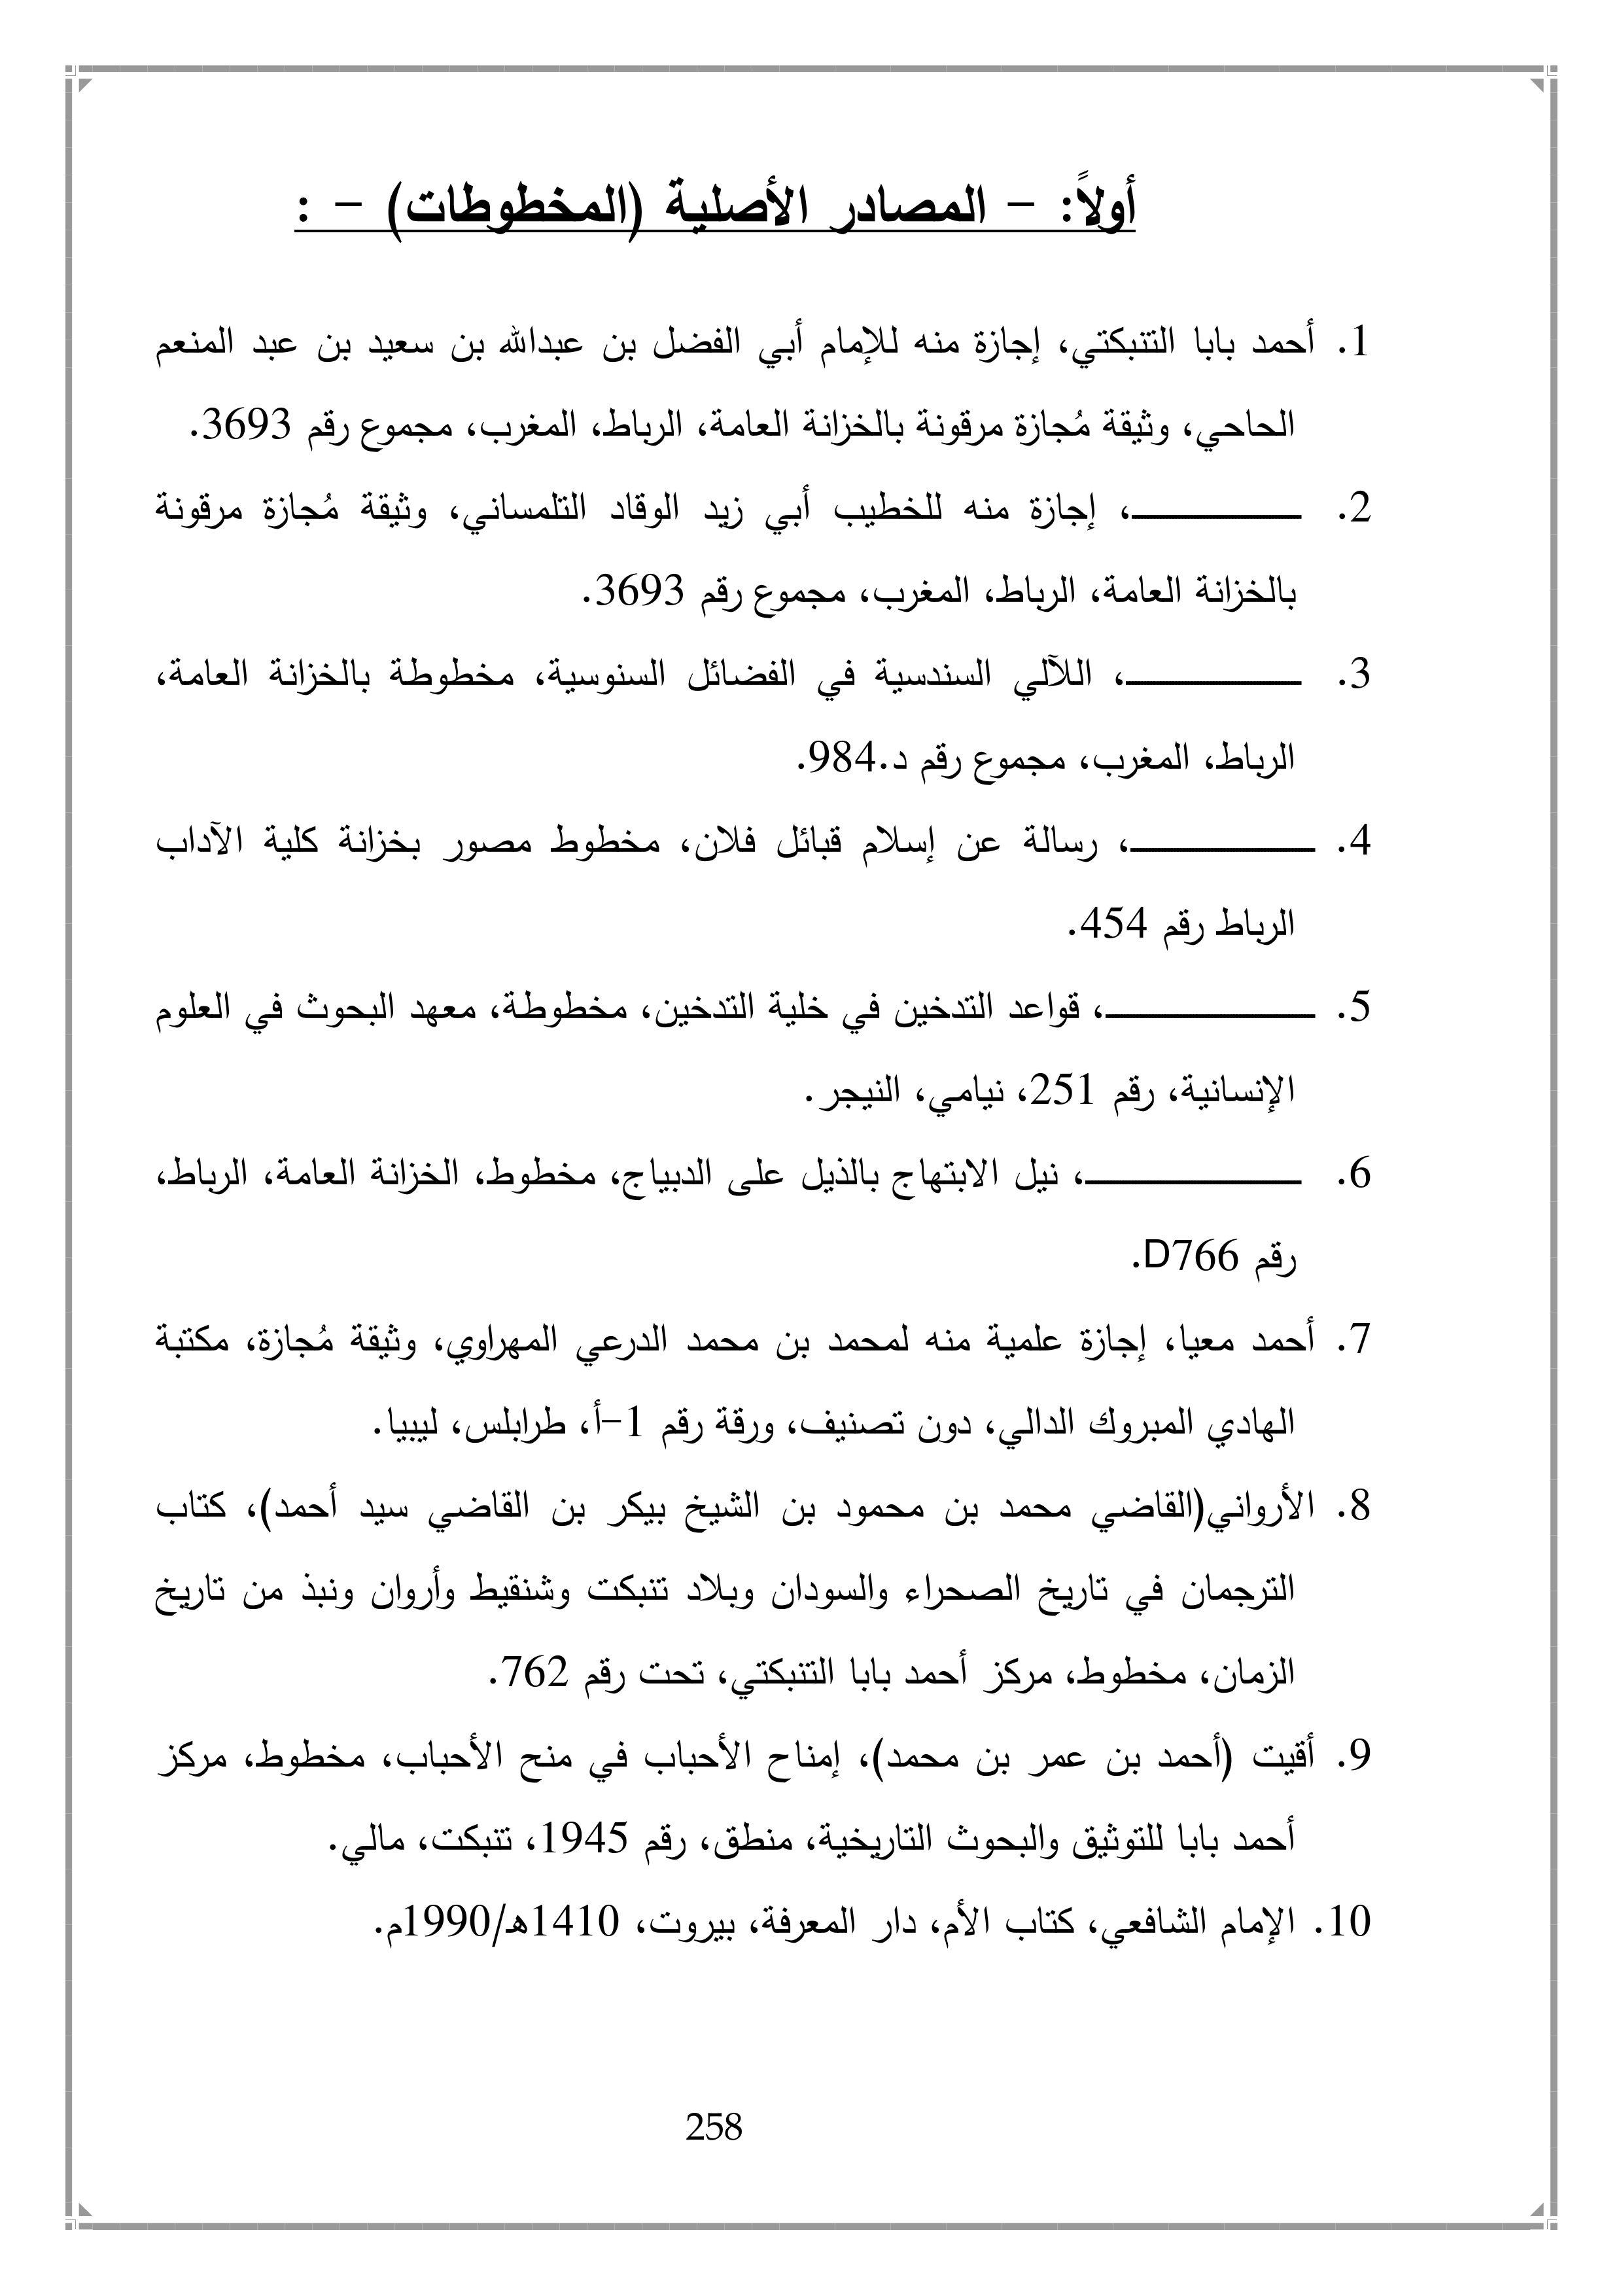 أولاً: - المصادر الأصلية (المخطوطات) - :
1. أحمد بابا التنبكتي، إجازة منه للإمام أبي الفضل بن عبدالله بن سعيد بن عبد المنعم
الحاحي، وثيقة مُجازة مرقونة بالخزانة العامة، الرباط، المغرب، مجموع رقم 3693.
2. ــــــــــــــــــ، إجازة منه للخطيب أبي زيد الوقاد التلمساني، وثيقة مُجازة مرقونة
بالخزانة العامة، الرباط، المغرب، مجموع رقم 3693.
3. ــــــــــــــــــ، اللآلي السندسية في الفضائل السنوسية، مخطوطة بالخزانة العامة،
الرباط، المغرب، مجموع رقم د.984.
4. ــــــــــــــــــ، رسالة عن إسلام قبائل فلان، مخطوط مصور بخزانة كلية الآداب
الرباط رقم 454.
5. ــــــــــــــــــــــ، قواعد التدخين في خلية التدخين، مخطوطة، معهد البحوث في العلوم
الإنسانية، رقم 251، نيامي، النيجر.
6. ــــــــــــــــــــــ، نيل الابتهاج بالذيل على الدبياج، مخطوط، الخزانة العامة، الرباط،
رقم D766.
7. أحمد معيا، إجازة علمية منه لمحمد بن محمد الدرعي المهراوي، وثيقة مُجازة، مكتبة
الهادي المبروك الدالي، دون تصنيف، ورقة رقم 1-أ، طرابلس، ليبيا.
8. الأرواني(القاضي محمد بن محمود بن الشيخ بيكر بن القاضي سيد أحمد)، كتاب
الترجمان في تاريخ الصحراء والسودان وبلاد تنبكت وشنقيط وأروان ونبذ من تاريخ
الزمان، مخطوط، مركز أحمد بابا التنبكتي، تحت رقم 762.
9. أقيت (أحمد بن عمر بن محمد)، إمناح الأحباب في منح الأحباب، مخطوط، مركز
أحمد بابا للتوثيق والبحوث التاريخية، منطق، رقم 1945، تنبكت، مالي.
10. الإمام الشافعي، كتاب الأم، دار المعرفة، بيروت، 1410هـ/1990م.
258